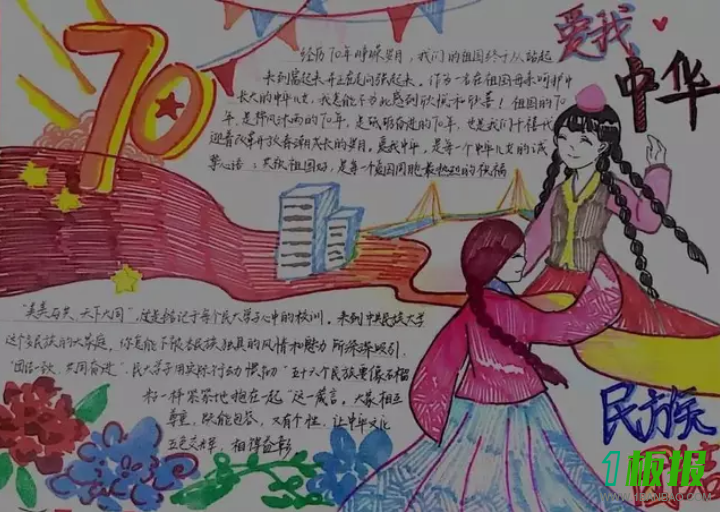 70
爱我
中华
经历70年峥嵘岁月，我们的祖国终于从站起
来到富起来再走向强起来。作为一名在祖国母亲呵护中
长大的中华儿女，我是能不为此感到欣慰和欣喜！祖国的70
年，是栉风沐雨的70年，是砥砺奋进的70年，也是我们十儿代
迎着改革开放春潮成长的岁月。爱我中华，是每一个中华儿女的诚
挚心语；共祝祖国好，是每一个爱国同胞最热烈的祝福
"美美与共 天下大同"，这是铭记于每个民大学子心中的校训。来到中央民族大学
这个多民族的大家庭，你更能不被各民族独具的风情和魅力所深深吸引。
"团结一致、共同奋进"，民大学子用实际行动践行"五十六个民族要像石榴
籽一样紧紧地抱在一起"这一箴言，大家相互
尊重，既能包容，又有个性，让中华文化
五色交辉，相得益彰
民族
团结
1板报
WWW.1BANBAO.COM